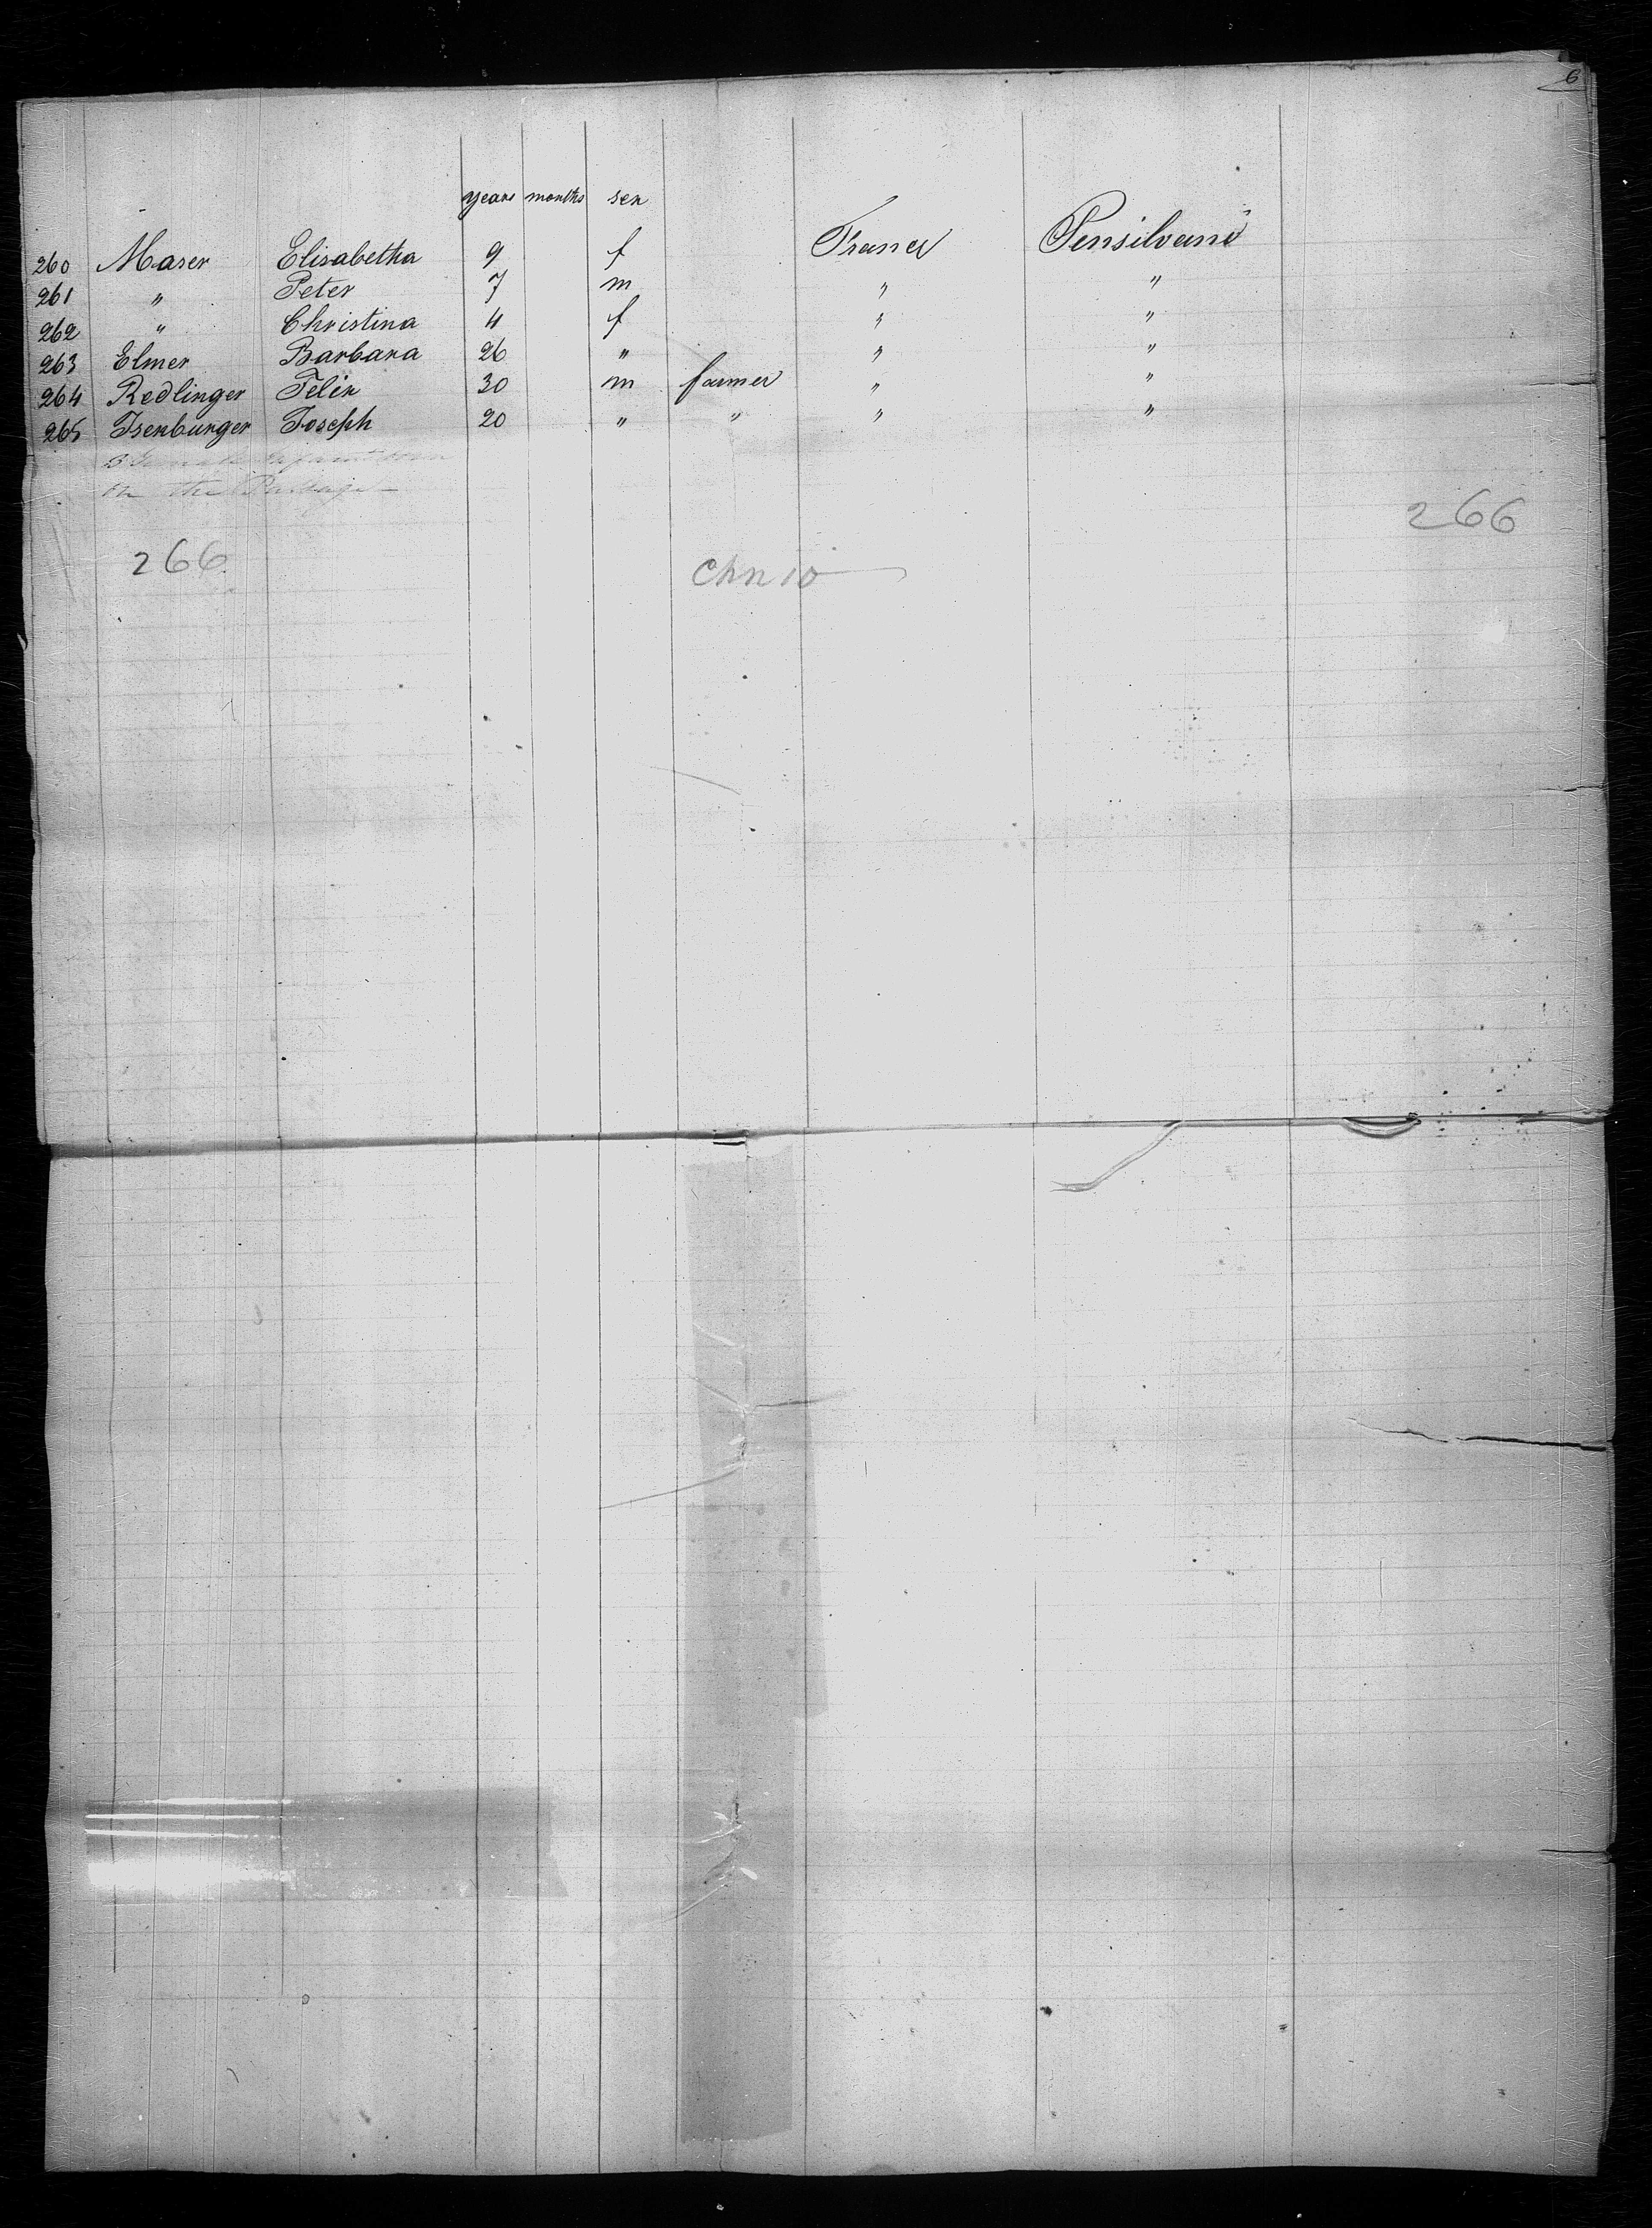 6
years months sex
260 Maser Elisabetha 9 f France Pensilvane
261 " Peter 7 m " "
262 " Christina 4 f " "
263 Elmer Barbara 26 " " "
264 Redlinger Felix 30 m farmer " "
265 Isenburger Joseph 20 " " " "
Infant born
on the Passage —
266
266
Chn 10